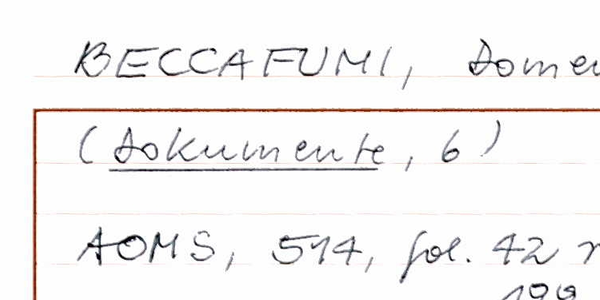 BECCAFUMI, Domen
(Dokumente, 6)
AOMS, 514, fol. 42 r
199